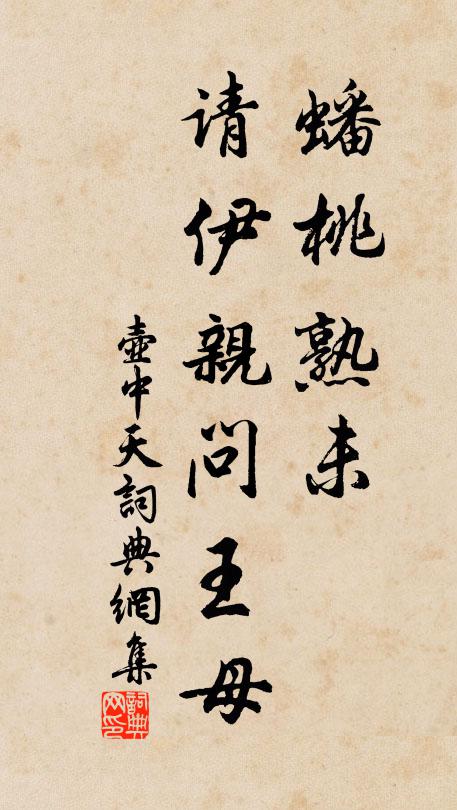 蟠桃熟未
请伊親問王母
壺中天詞典網集
詞典网印